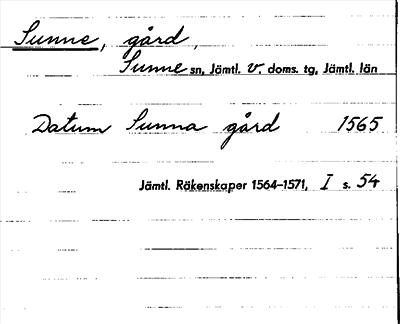 Sunne, gård,
Sunne sn, Jämtl. v. doms. tg, Jämtl. län
Datum Sunna gård 1565
Jämtl. Räkenskaper 1564-1571, I s. 54